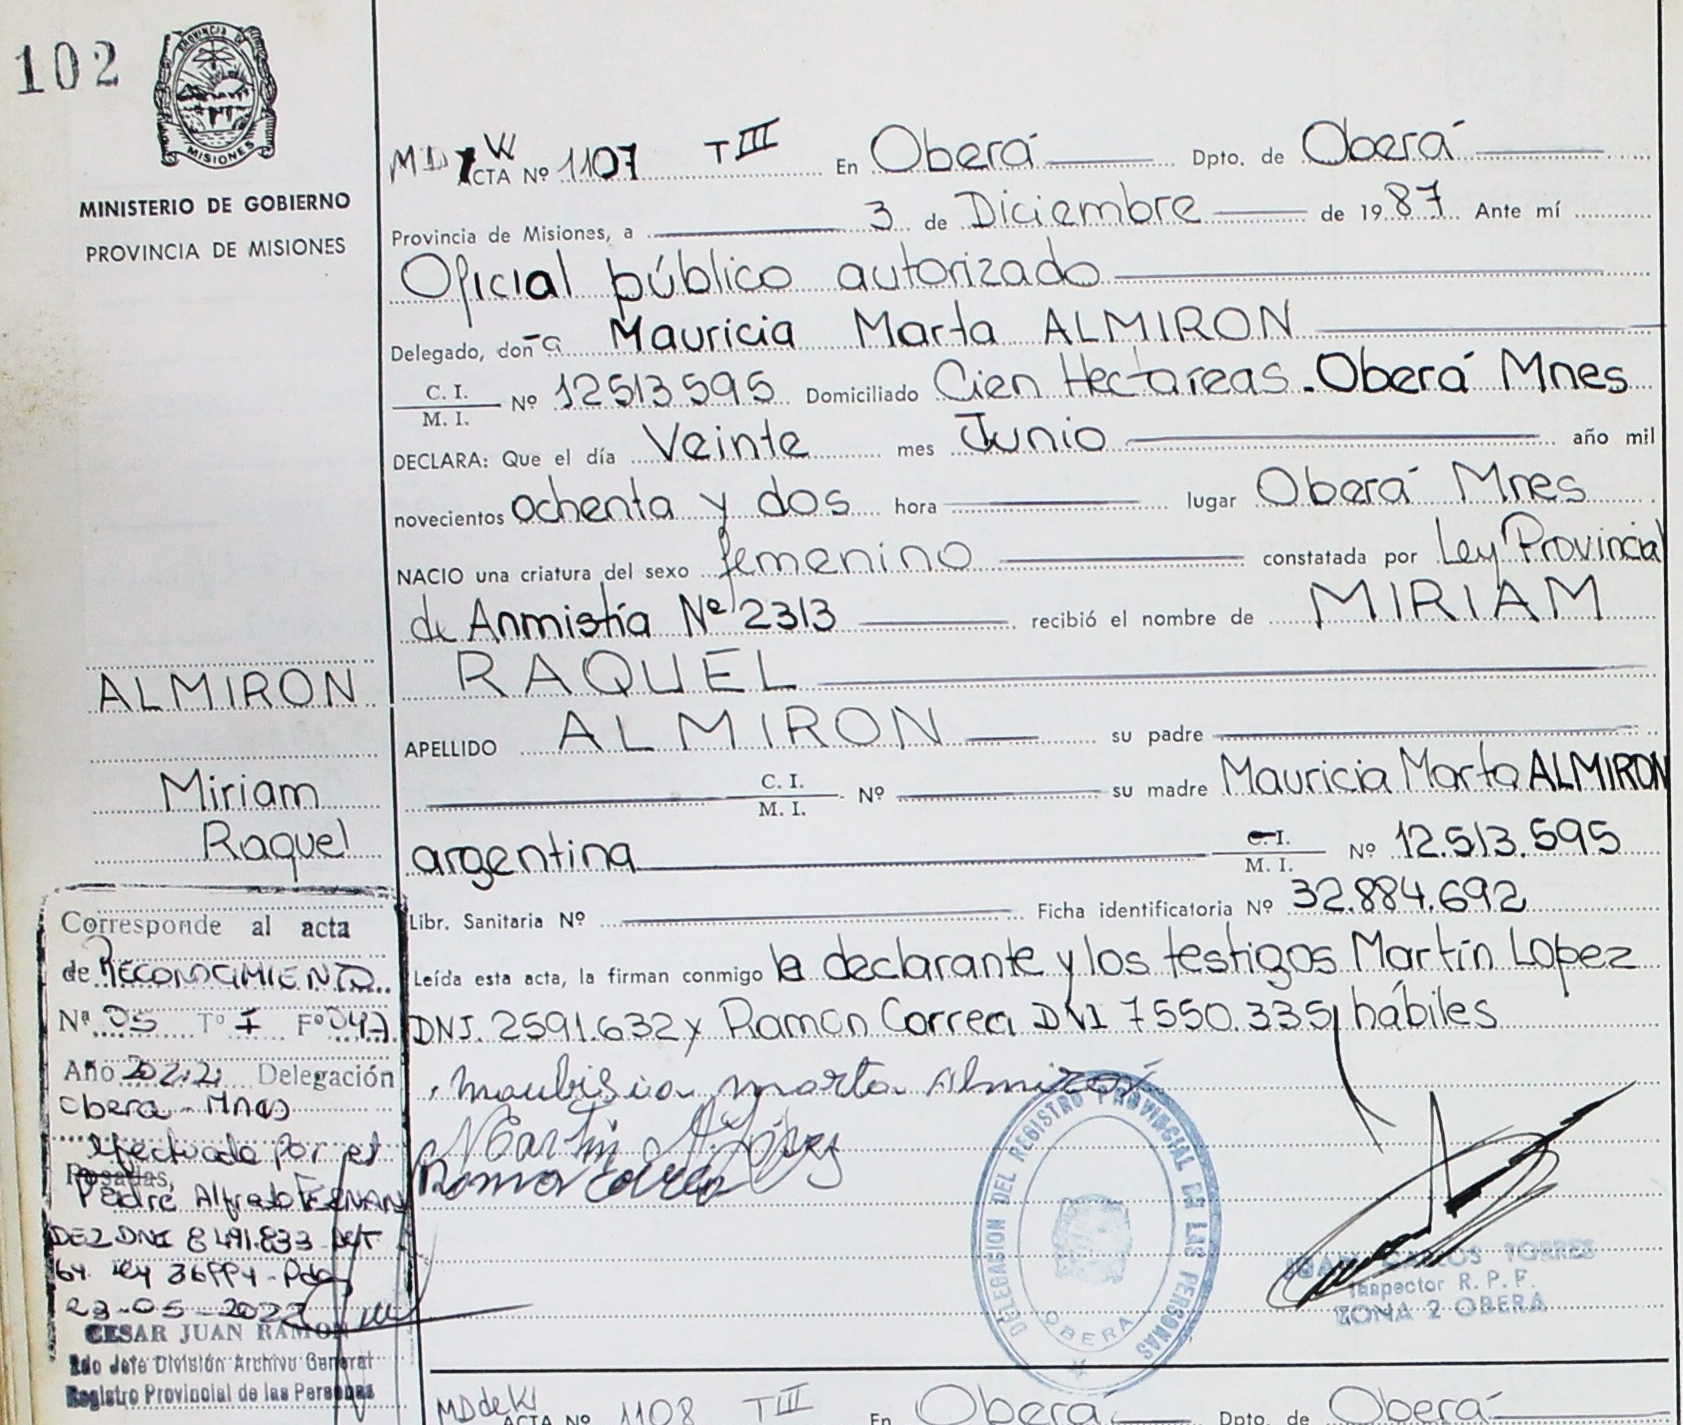 102
PROVINCIA DE
MISIONES
MINISTERIO DE GOBIERNO
PROVINCIA DE MISIONES
ACTA Nº 1107 T III En Oberá Dpto. de Oberá
Provincia de Misiones, a 3 de Diciembre de 1987 Ante mí
Oficial público autorizado
Delegado, doña Mauricia Marta ALMIRON
C. I.
M. I. Nº 12513595 Domiciliado Cien Hectareas - Oberá Mnes
DECLARA: Que el día Veinte mes Junio año mil
novecientos ochenta y dos hora lugar Oberá Mnes
NACIO una criatura del sexo femenino constatada por Ley Provincial
de Anmistía Nº 2313 recibió el nombre de MIRIAM
RAQUEL
APELLIDO ALMIRON su padre
C. I.
M. I. Nº su madre Mauricia Marta ALMIRON
argentina C. I.
M. I. Nº 12.513.595
Libr. Sanitaria Nº Ficha identificatoria Nº 32.884.692
Leída esta acta, la firman conmigo la declarante y los testigos Martín Lopez
DNI. 2591.632 y Ramón Correa DNI 7550.335, hábiles
Maubisia marta Almiron
Martin A. López
Ramon Correa
DELEGACION DEL REGISTRO PROVINCIAL DE LAS PERSONAS
OBERA
JUAN CARLOS TORRES
Inspector R. P. P.
ZONA 2 OBERA
ALMIRON
Miriam
Raquel
Corresponde al acta
de RECONOCIMIENTO
Nº 05 Tº I Fº 047
Año 2022 Delegación
Obera - Mnes
efectuado por el
Posadas,
Padre Alfredo FERNAN
DEZ DNI 8491.833
23-05-2022
CESAR JUAN RAMON
2do Jefe División Archivo General
Registro Provincial de las Personas
ACTA Nº 1108 T III En Oberá Dpto. de Oberá